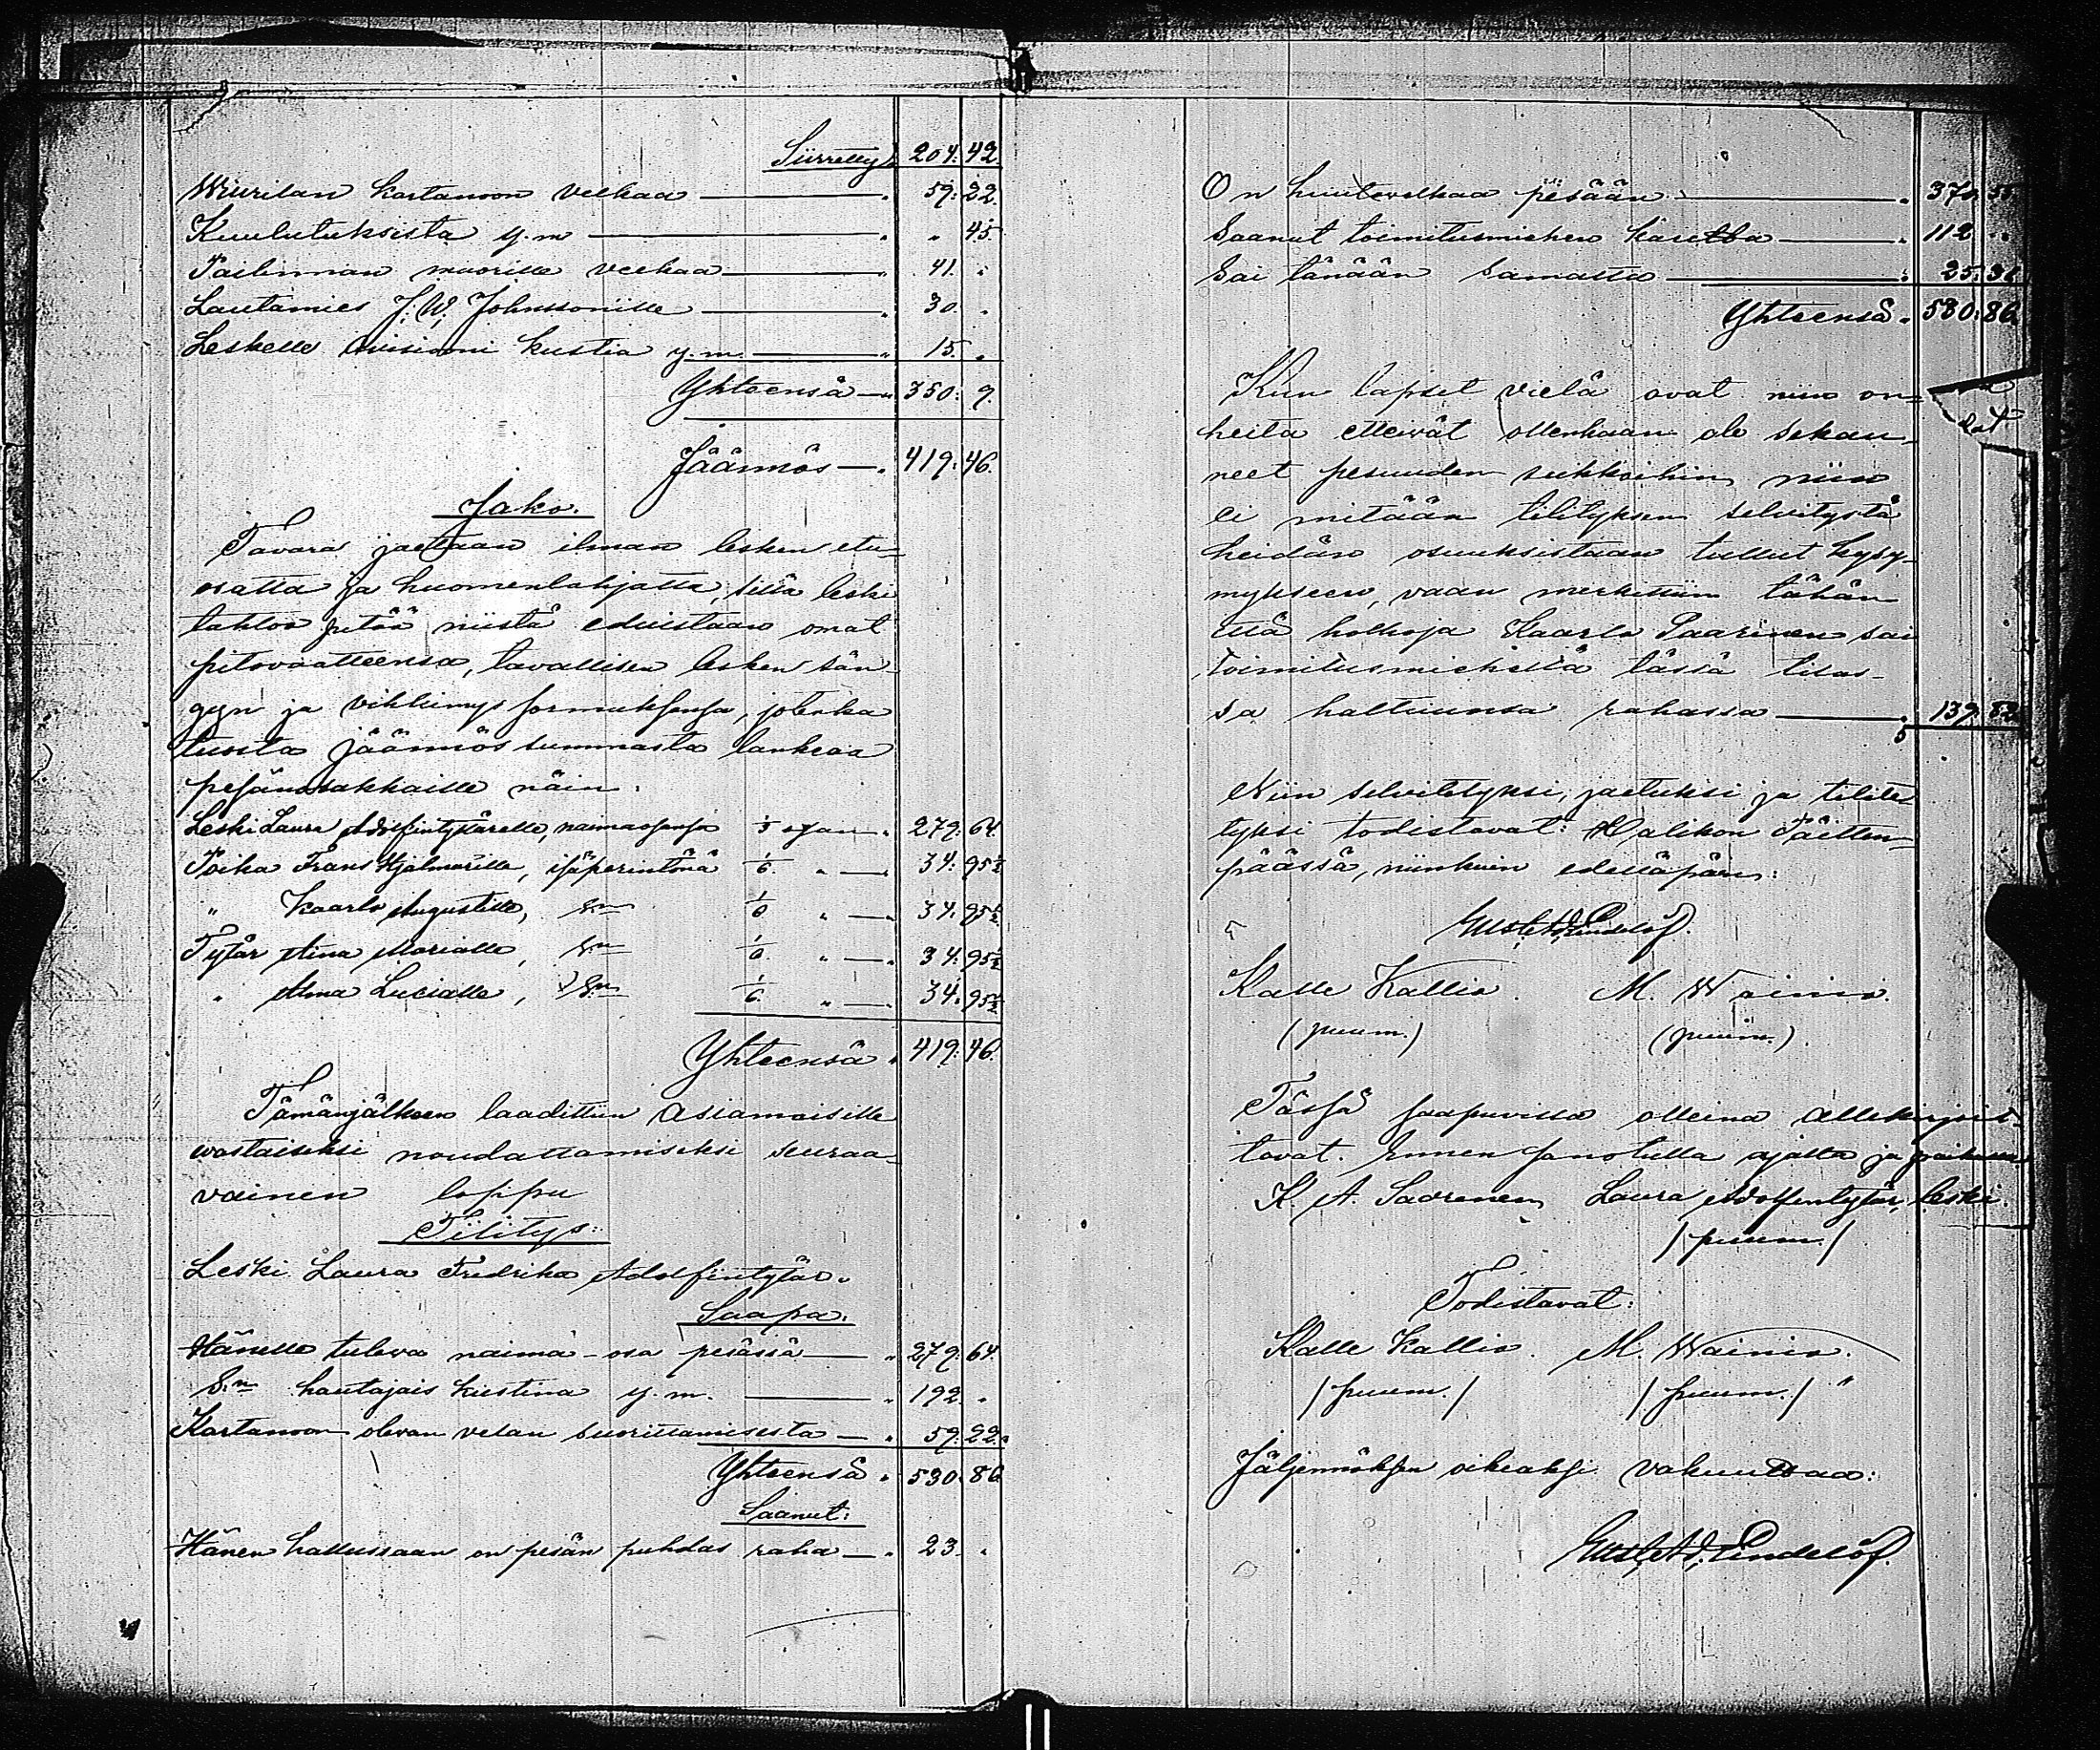 Siirretty 204: 42.
Wiurilan kartanoon velkaa — „ 59: 22.
Kuulutuksista y.m — „ „ 45.
muorille velkaa — „ 41. „
Lautamies J. W. Johnssonille — „ 30. „
Leskelle kustia y.m. — „ 15. „
Yhteensä — „ 350: 9.
Jäännös — „ 419: 46.
Jako.
Tavara jaetaan ilman lesken etu-
osatta ja huomenlahjatta, sillä leski
tahtoo pitää niistä eduistaan omat
pitovaatteensa, tavallisen lesken sän-
gyn ja vihkimys sormuksensa, jotenka
tuosta jäännös summasta lankeaa
pesänosakkaille näin:
Leski Laura Adolfintytärelle, naimaosansa 2/3 osan „ 279: 64.
Poika Frans Hjalmarille, isäperintönä 1/6 „ — 34: 95½
„ Kaarlo Augustille, S:n 1/6 „ — „ 34. 95½
Tytär Aina Marialle, S:n 1/6. „ — „ 34: 95½
„ Alma Lucialle, S:n 1/6. „ — „ 34. 95½
Yhteensä „ 419: 46.
Tämänjälkeen laadittiin asiamaisille
vastaiseksi noudattamiseksi seuraa-
vainen loppu
Tilitys:
Leski Laura Fredrika Adolfintytär.
Saapa.
Hänelle tuleva naima-osa pesässä — „ 279: 64.
S:n hautajais kustina y.m. — „ 192. „
Kartanoon olevan velan suorittamisesta — „ 59: 22.
Yhteensä „ 530. 86
Saanut:
Hänen hallussaan on pesän puhdas raha — „ 23. „
On huutovelkaa pesään — „ 370. 55
Saanut toimitusmiehen kautta — „ 112 „
Sai tänään samalta — „ 25. 31
Yhteensä „ 530: 86
Kun lapset vielä ovat niin on-
heita etteivät ollenkaan ole sekau-
neet pesuuden seikkoihin, niin
ei mitään tilityksen selvitystä
heidän osuuksistaan tullut kysy-
mykseen, vaan merkittiin tähän
että holhoja Kaarlo Saarinen sai
toimitusmieheltä tässä tilas-
sa haltuunsa rahassa — „ 139. 82
Niin selvitetyksi, jaetuksi ja tilite-
tyksi todistavat: Halikon
päässä, niinkuin edelläpäin:
Gust. Ad. Lindelöf.
Kalle Kallio. M. Wainio.
(puum.) (puum.)
Tässä saapuvilla olleina allekirjoit-
tavat. Ennen sanotulla ajalla ja paikalla
K. A. Saarenen, Laura Adolfintytär, leski.
/puum./
Todistavat:
Kalle Kallio. M. Wainio.
/puum./ /puum./ „
Jäljennöksen oikeaksi vakuuttaa:
Gust. Ad. Lindelöf.